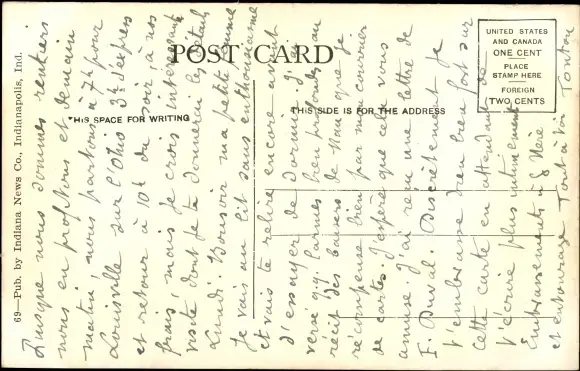 POST CARD
THIS SPACE FOR WRITING
THIS SIDE IS FOR THE ADDRESS
UNITED STATES
AND CANADA
ONE CENT
PLACE
STAMP HERE
FOREIGN
TWO CENTS
69—Pub. by Indiana News Co., Indianapolis, Ind.
Puisque nous sommes rentiers
nous en profitons et demain
matin, nous partons à 7h pour
Louisville sur l'Ohio 3h½ d'express
et retour à 10h du soir à nos
frais, mais je crois intéressant
visite dont je te donnerai les détails
Lundi. Bonsoir ma petite femme
Je vais au lit sans enthousiasme
et vais te relire encore avant
d'essayer de dormir. J'ai
versé q.q. larmes bien au
récit des baisers de que je
récompense bien par mon courrier
de cartes. J'espère que cela vous
amuse. J'ai reçu une lettre de
F. Duval. Discrètement je
t'embrasse bien bien fort sur
cette carte en attendant de
t'écrire plus intimement
Embrassements à g Mère
et entourage Tout à toi Tonton